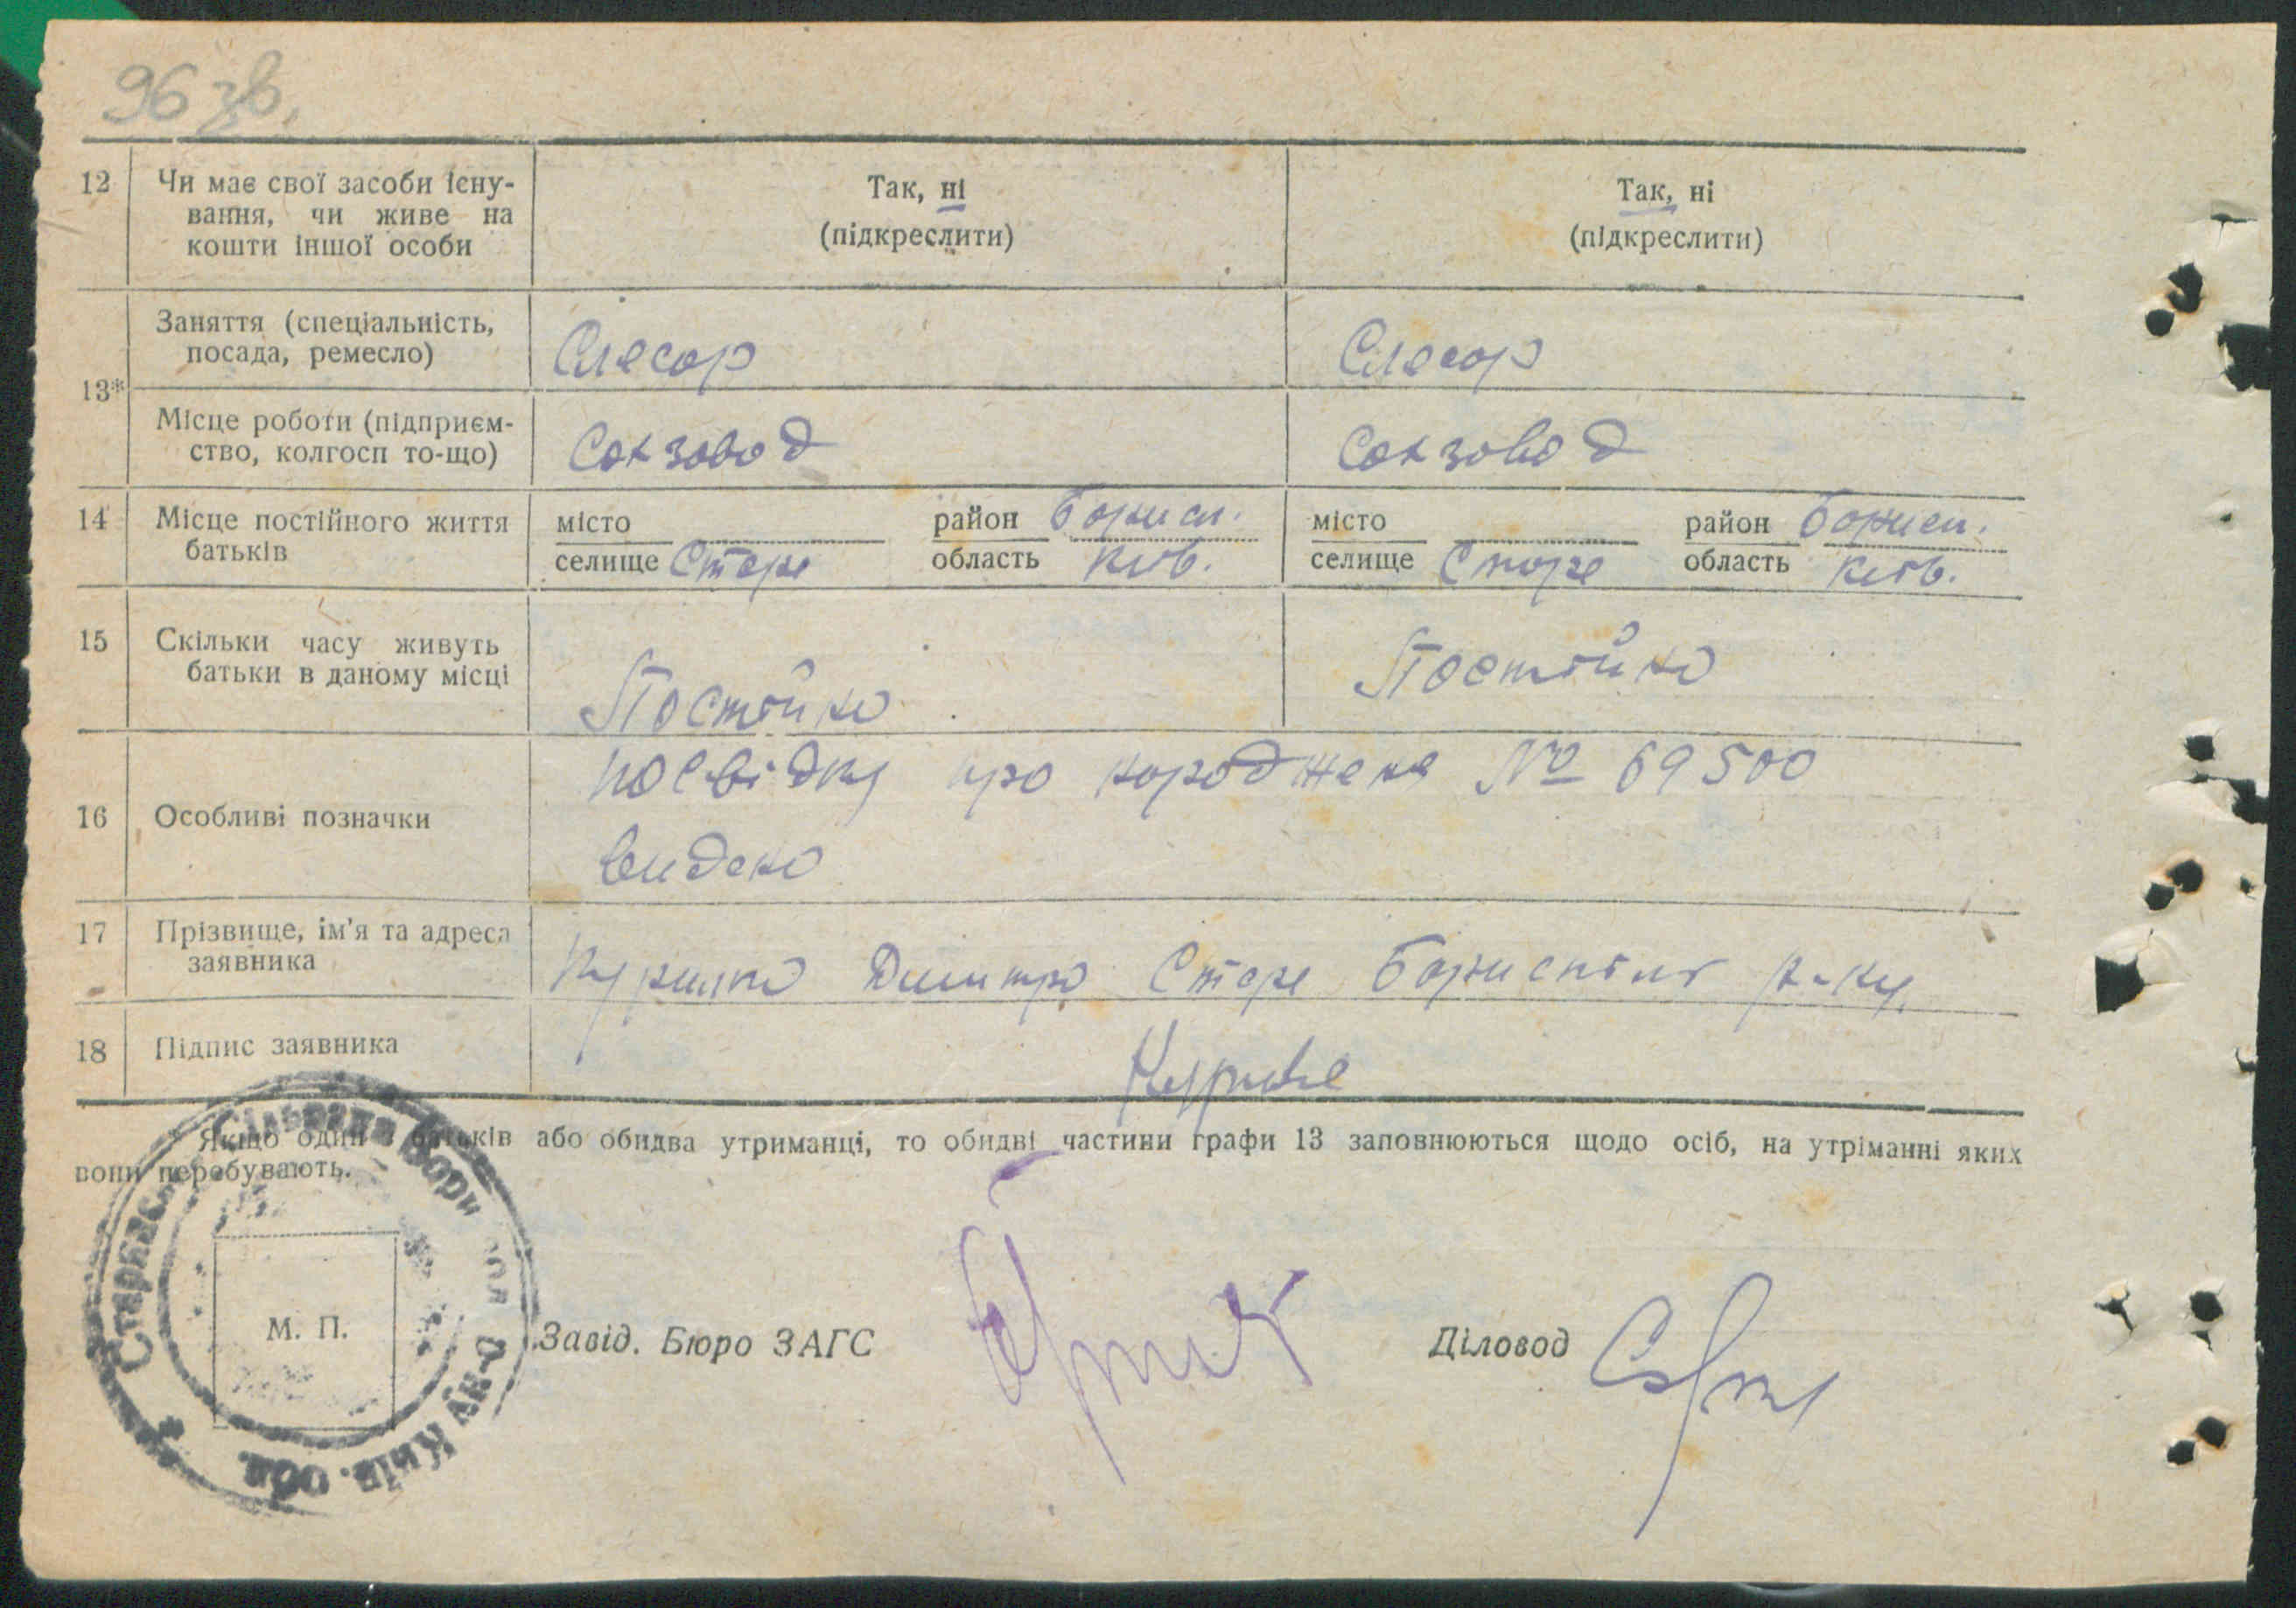 96 зв.
12 Чи має свої засоби існу- Так, ні Так, ні
вання, чи живе на (підкреслити) (підкреслити)
кошти іншої особи
13* Заняття (спеціальність, Слесар Слесар
посада, ремесло)
Місце роботи (підприєм- Сахзавод Сахзавод
ство, колгосп то-що)
14 Місце постійного життя місто район Борисп. місто район Борисп.
батьків селище Старе область Київ. селище Старе область Київ.
15 Скільки часу живуть Постійно Постійно
батьки в даному місці
посвідку про народження № 69500
16 Особливі позначки
видано
17 Прізвище, ім'я та адреса
заявника Дмитро Старе Бориспіль р-ну
18 Підпис заявника
* Якщо один з батьків або обидва утриманці, то обидві частини графи 13 заповнюються щодо осіб, на утриманні яких
вони перебувають.
Старівс сільрада Бори пол р-ну Київ. обл.
М. П. Завід. Бюро ЗАГС Діловод